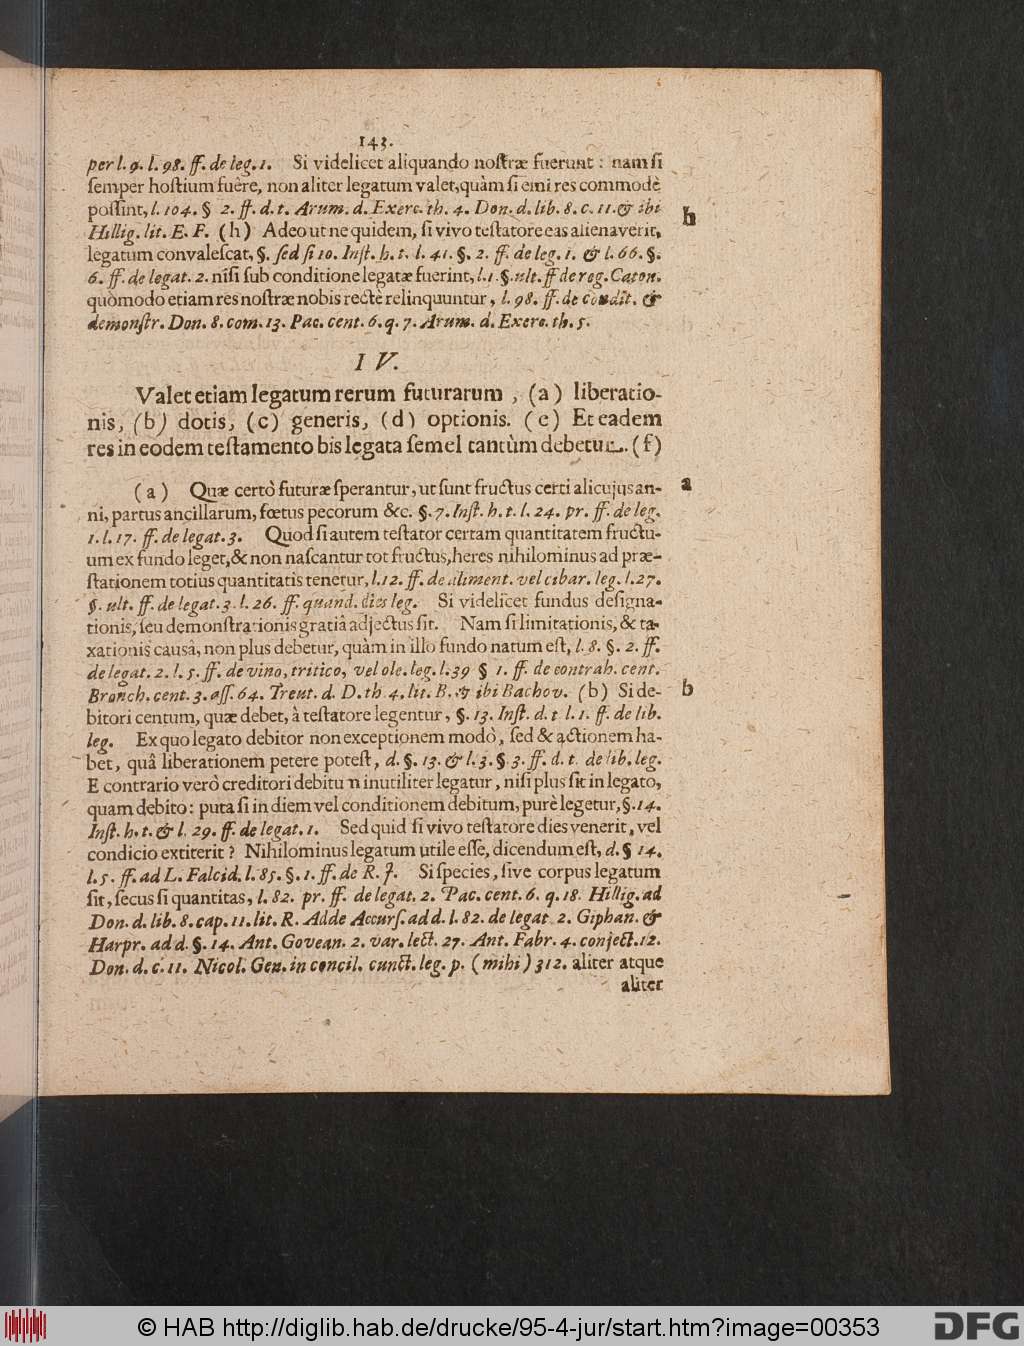 143.
per l. 9. l. 98. ff. de leg. 1. Si videlicet aliquando nostræ fuerunt : nam si
semper hostium fuêre, non aliter legatum valet, quàm si emi res commodè
possint, l. 104. § 2. ff. d. t. Arum. d. Exerc. th. 4. Don. d. lib. 8. c. 11. & ibi
h
Hillig. lit. E. F. (h) Adeo ut ne quidem, si vivo testatore eas alienaverit,
legatum convalescat, §. sed si 10. Inst. h. t. l. 41. §. 2. ff. de leg. 1. & l. 66. §.
6. ff. de legat. 2. nisi sub conditione legatæ fuerint, l. 1. §. ult. ff de reg. Caton.
quòmodo etiam res nostræ nobis rectè relinquuntur, l. 98. ff. de condit. &
demonstr. Don. 8. com. 13. Pac. cent. 6. q. 7. Arum. d. Exerc. th. 5.
IV.
Valet etiam legatum rerum futurarum, (a) liberatio-
nis, (b) dotis, (c) generis, (d) optionis. (e) Et eadem
res in eodem testamento bis legata semel tantùm debetur. (f)
a
(a) Quæ certò futuræ sperantur, ut sunt fructus certi alicujus an-
ni, partus ancillarum, fœtus pecorum &c. §. 7. Inst. h. t. l. 24. pr. ff. de leg.
1. l. 17. ff. de legat. 3. Quod si autem testator certam quantitatem fructu-
um ex fundo leget, & non nascantur tot fructus, heres nihilominus ad præ-
stationem totius quantitatis tenetur, l. 12. ff. de aliment. vel cibar. leg. l. 27.
§. ult. ff. de legat. 3. l. 26. ff. quand. dies leg. Si videlicet fundus designa-
tionis, seu demonstrationis gratiâ adjectus sit. Nam si limitationis, & ta-
xationis causâ, non plus debetur, quàm in illo fundo natum est, l. 8. §. 2. ff.
de legat. 2. l. 5. ff. de vino, tritico, vel ole. leg. l. 39 § 1. ff. de contrah. cent.
b
Bronch. cent. 3. ass. 64. Treut. d. D. th 4. lit. B. & ibi Bachov. (b) Si de-
bitori centum, quæ debet, à testatore legentur, §. 13. Inst. d. t l. 1. ff. de lib.
leg. Ex quo legato debitor non exceptionem modò, sed & actionem ha-
bet, quâ liberationem petere potest, d. §. 13. & l. 3. § 3. ff. d. t. de lib. leg.
E contrario verò creditori debitum inutiliter legatur, nisi plus sit in legato,
quam debito: puta si in diem vel conditionem debitum, purè legetur, §. 14.
Inst. h. t. & l. 29. ff. de legat. 1. Sed quid si vivo testatore dies venerit, vel
condicio extiterit? Nihilominus legatum utile esse, dicendum est, d. § 14.
l. 5. ff. ad L. Falcid. l. 85. §. 1. ff. de R. J. Si species, sive corpus legatum
sit, secus si quantitas, l. 82. pr. ff. de legat. 2. Pac. cent. 6. q. 18. Hillig. ad
Don. d. lib. 8. cap. 11. lit. R. Adde Accurs. ad d. l. 82. de legat 2. Giphan. &
Harpr. ad d. §. 14. Ant. Govean. 2. var. lect. 27. Ant. Fabr. 4. conject. 12.
Don. d. c. 11. Nicol. Gen. in concil. cunct. leg. p. (mihi) 312. aliter atque
aliter
© HAB http://diglib.hab.de/drucke/95-4-jur/start.htm?image=00353
DFG